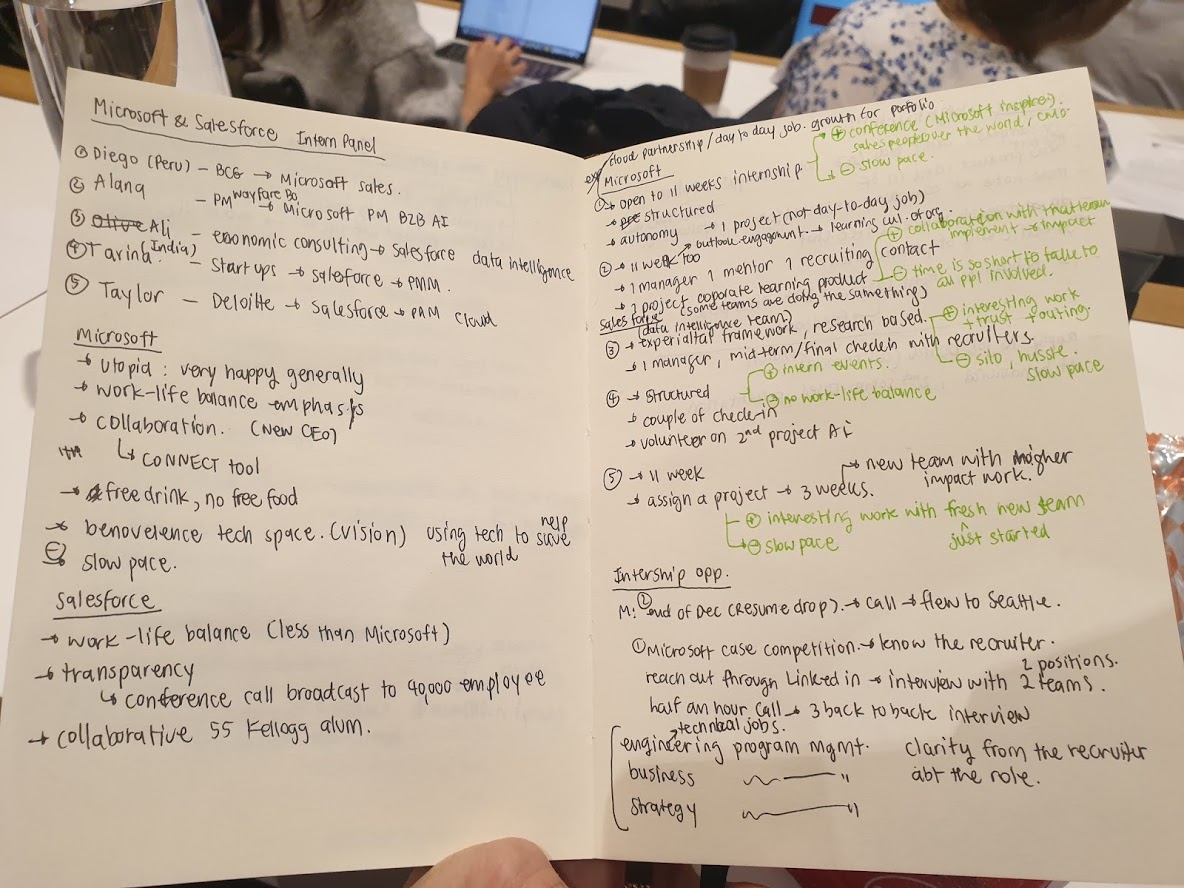 Microsoft & Salesforce Intern Panel
① Diego (Peru) – BCG → Microsoft sales.
② Alana – PM Wayfare Bo → Microsoft PM B2B AI
③ Olive Ali – economic consulting → salesforce data intelligence
④ Tarina (India) – Start ups → salesforce → PMM.
⑤ Taylor – Deloitte → Salesforce → PAM Cloud
Microsoft
→ utopia : very happy generally
→ work-life balance emphasis
→ collaboration. (New CEO)
↳ CONNECT tool
→ free drink, no free food
→ benovelence tech space. (vision) using tech to help save
the world
⊖ slow pace.
Salesforce
→ work-life balance (less than Microsoft)
→ transparency
↳ conference call broadcast to 40,000 employee
→ collaborative 55 Kellogg alum.
cloud partnership / day to day job. growth for porfolio
Microsoft
⊕ conference (Microsoft inspires).
sales people over the world, CMO
⊖ slow pace.
① → open to 11 weeks internship
→ structured
→ autonomy → 1 project (not day-to-day job)
↗ outlook engagement. → learning cul. of org.
② → 11 week too
→ 1 manager 1 mentor 1 recruiting contact
⊕ collaboration with that team
implement → impact
→ 2 project coporate learning product
(some teams are doing the samething)
⊖ time is so short to talk to
all ppl involved.
Salesforce
(data intelligence team)
③ → framework, research based.
⊕ interesting work
+ trust + outing.
→ 1 manager, mid-term/final checkin with recruiters.
⊖ silo, hussle.
slow pace
④ → structured
⊕ intern events.
⊖ no work-life balance
→ couple of check-in
→ volunteer on 2nd project AI
⑤ → 11 week
→ assign a project → 3 weeks.
→ new team with higher
impact work.
⊕ interesting work with fresh new team
just started
⊖ slow pace
Intership opp.
M: ② end of Dec (resume drop). → call → flew to Seattle.
① Microsoft case competition. → know the recruiter.
reach out through Linkedin → interview with 2 teams.
2 positions.
half an hour call → 3 back to back interview
↗ technical jobs.
engineering program mgmt. clarity from the recruiter
business ~ — " abt the role.
strategy ~ — "